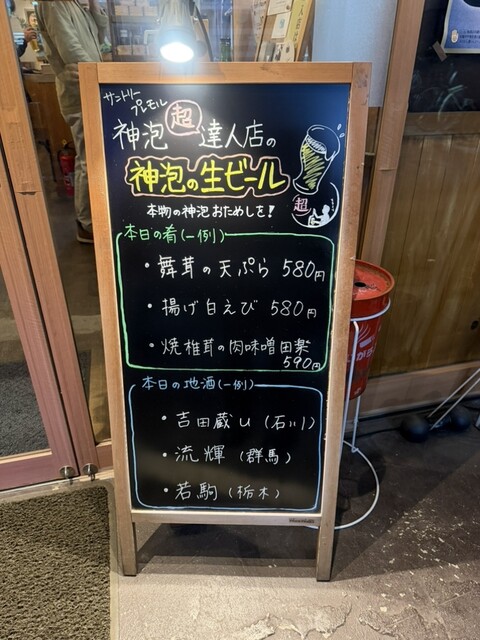 サントリー
プレモル
神泡超達人店の
神泡の生ビール
本物の神泡おためしを!
超
本日の肴(一例)
・舞茸の天ぷら 580円
・揚げ白えび 580円
・焼椎茸の肉味噌田楽
590円
本日の地酒(一例)
・吉田蔵u(石川)
・流輝(群馬)
・若駒(栃木)